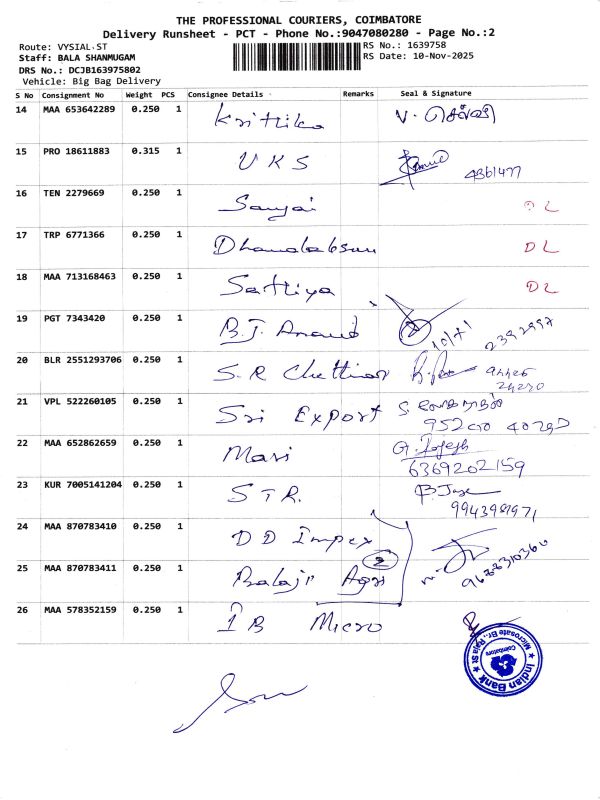 THE PROFESSIONAL COURIERS, COIMBATORE
Delivery Runsheet - PCT - Phone No.:9047080280 - Page No.:2
Route: VYSIAL.ST
RS No.: 1639758
Staff: BALA SHANMUGAM
RS Date: 10-Nov-2025
DRS No.: DCJB163975802
Vehicle: Big Bag Delivery
S No Consignment No Weight PCS Consignee Details Remarks Seal & Signature
14 MAA 653642289 0.250 1 Krithika
15 PRO 18611883 0.315 1 UKS
16 TEN 2279669 0.250 1 Sanjai DL
17 TRP 6771366 0.250 1 DL
18 MAA 713168463 0.250 1 Sathiya DL
19 PGT 7343420 0.250 1 B.J. Anand 2 10/11 2392997
20 BLR 2551293706 0.250 1 S.R Chettinar
21 VPL 522260105 0.250 1 Sri Export
22 MAA 652862659 0.250 1 Mari 6369202159
23 KUR 7005141204 0.250 1 STR.
24 MAA 870783410 0.250 1 DD Impex
25 MAA 870783411 0.250 1 Balaji Agri 2
26 MAA 578352159 0.250 1 IB Micro
Indian Bank
Microsate Br., Raja St
Coimbatore